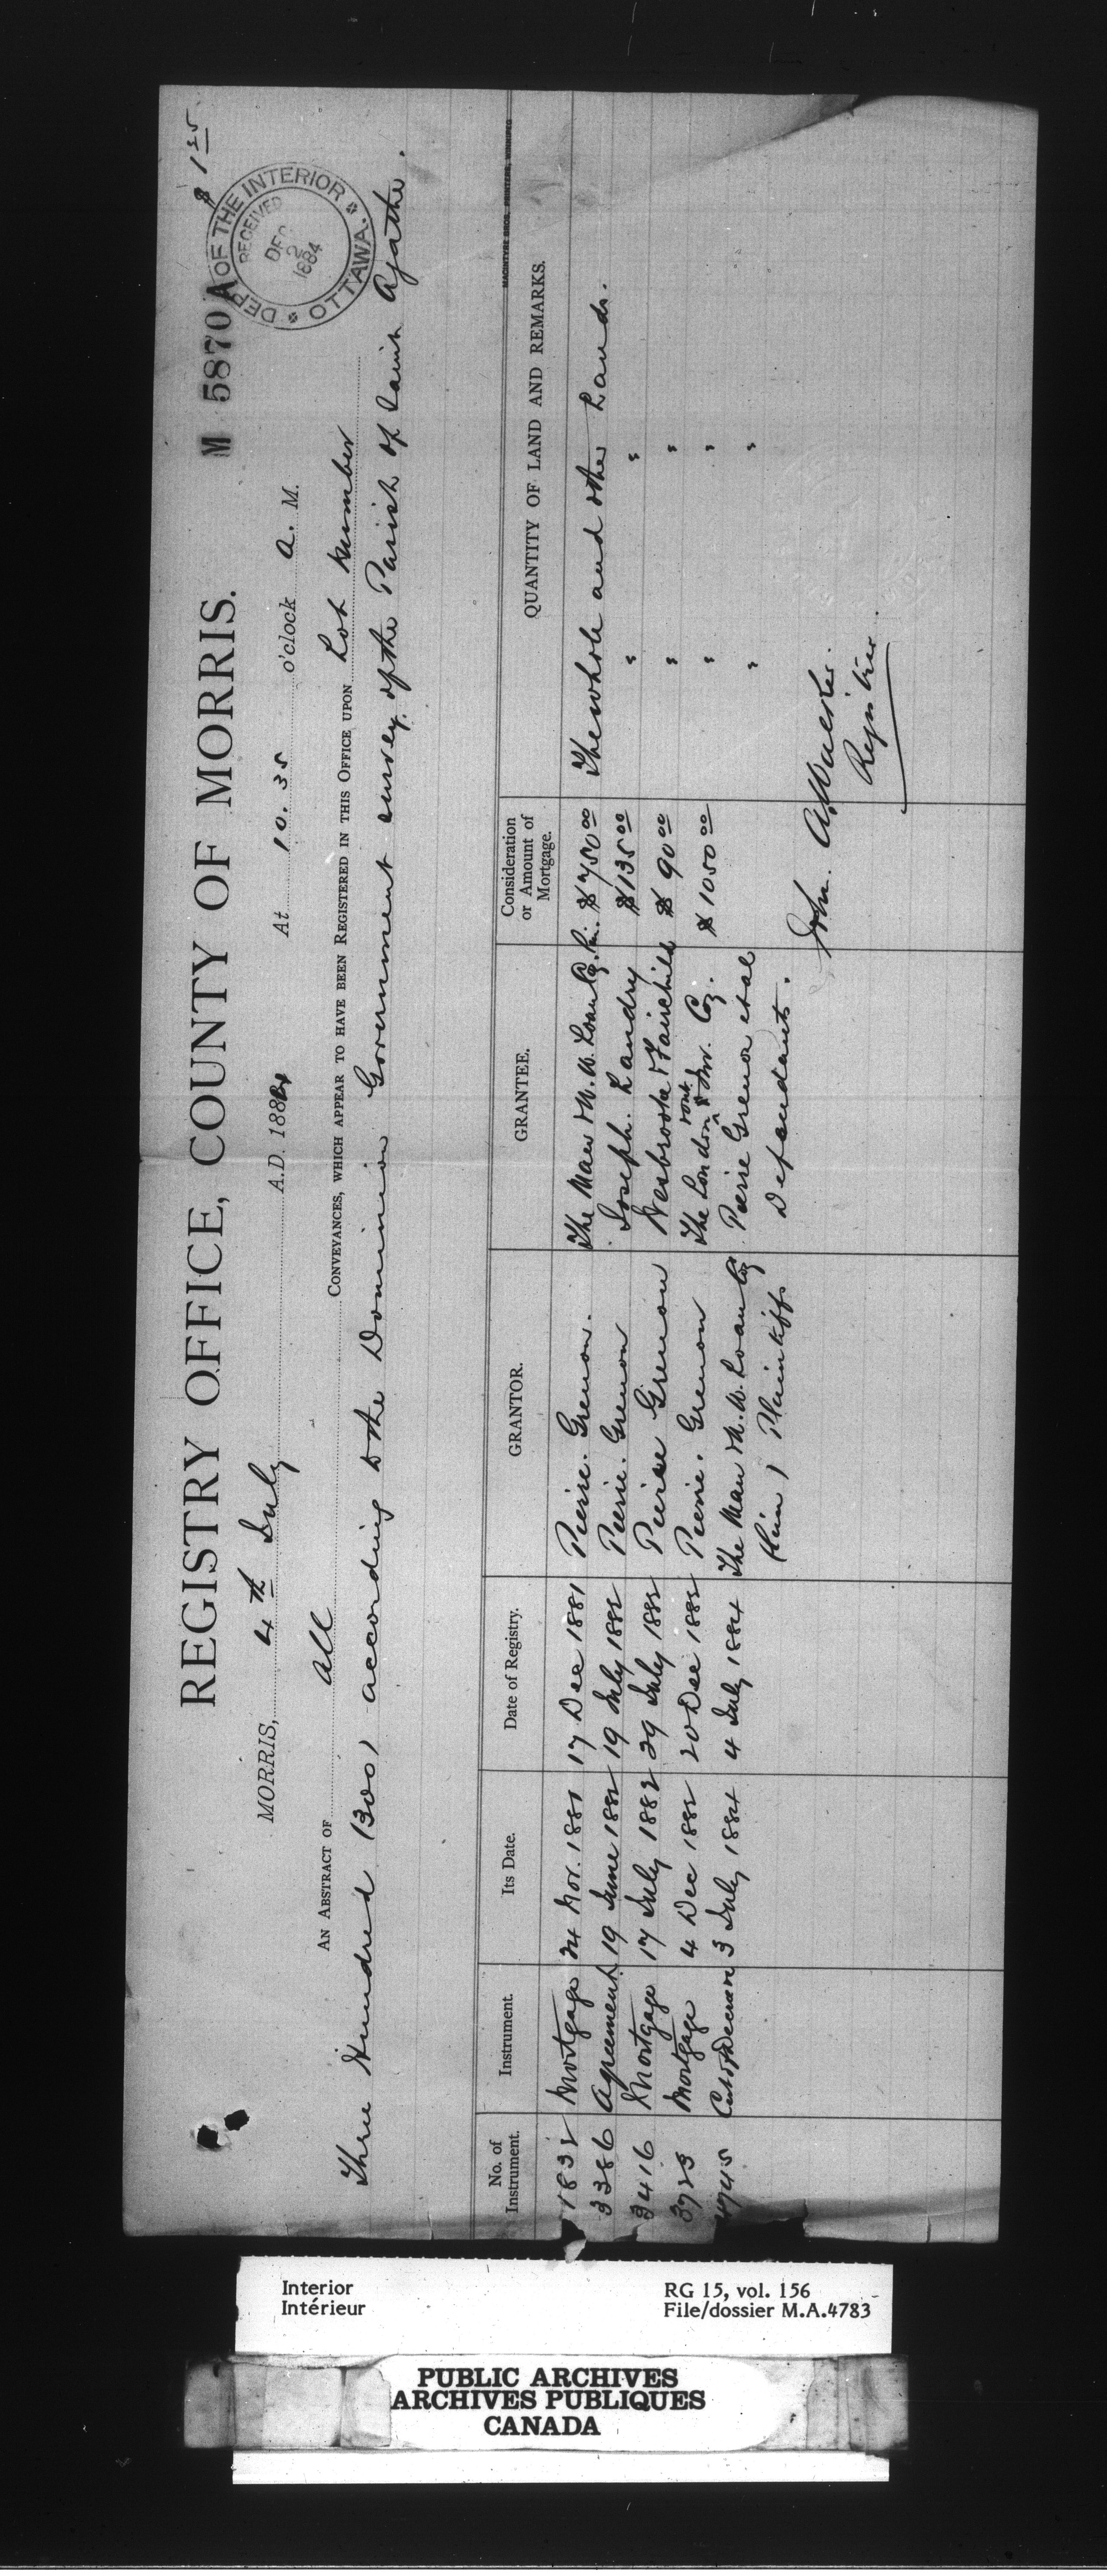 $ 1 25
M 5870 A
DEPT OF THE INTERIOR
RECEIVED
DEC 2 1884
OTTAWA.
REGISTRY OFFICE, COUNTY OF MORRIS.
MORRIS, 4th July A.D. 1884 At 10.35 o'clock A. M.
AN ABSTRACT OF All CONVEYANCES, WHICH APPEAR TO HAVE BEEN REGISTERED IN THIS OFFICE UPON Lot Number
Three Hundred (300) according to the Dominion Government survey of the Parish of Saint Agathe.
MACINTYRE BROS. PRINTERS, WINNIPEG
No. of Instrument. Instrument. Its Date. Date of Registry. GRANTOR. GRANTEE. Consideration or Amount of Mortgage. QUANTITY OF LAND AND REMARKS.
1832 Mortgage 24 Nov. 1881 17 Dec 1881 Pierre. Grenon. The Man & N. W. Loan Co. $750 00 The whole and other Lands.
3386 Agreement 19 June 1882 19 July 1882 Pierre. Grenon Joseph. Landry $135 00 " "
3416 Mortgage 17 July 1882 29 July 1882 Pierre Grenon Wesbrook & Fairchild $ 90 00 " "
3723 Mortgage 4 Dec 1882 20 Dec 1882 Pierre. Grenon The London & Ont Inv. Coy. $ 1050 00 " "
4745 3 July 1884 4 July 1884 The Man & N. W. Loan Coy Pierre Grenon et al " "
(Lim) Plaintiffs Defendants.
John. A.
Registrar
Interior
Intérieur
RG 15, vol. 156
File/dossier M.A.4783
PUBLIC ARCHIVES
ARCHIVES PUBLIQUES
CANADA